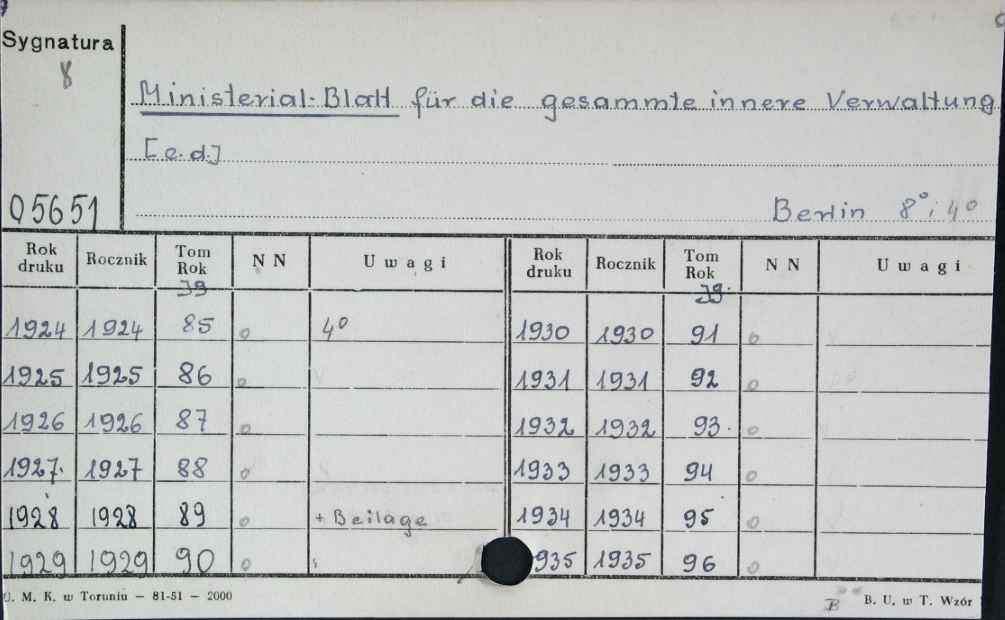 Sygnatura
8
Ministerial-Blatt für die gesammte innere Verwaltung
[c.d.]
05651
Berlin 8° i 4°
Rok druku Rocznik Tom Rok NN Uwagi Rok druku Rocznik Tom Rok NN Uwagi
Jg Jg.
1924 1924 85 o 4° 1930 1930 91 o
1925 1925 86 o 1931 1931 92 o
1926 1926 87 o 1932 1932 93. o
1927. 1927 88 o 1933 1933 94 o
1928 1928 89 o + Beilage 1934 1934 95 o
1929 1929 90 o 935 1935 96 o
U. M. K. w Toruniu — 81-51 — 2000
B B. U. w T. Wzór